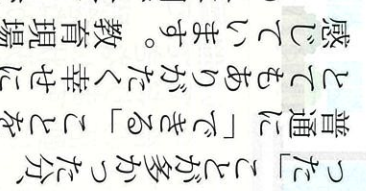 った」ことが多かった分、
普通に「できる」ことを
とてもありがたく幸せに
感じています。教育現場